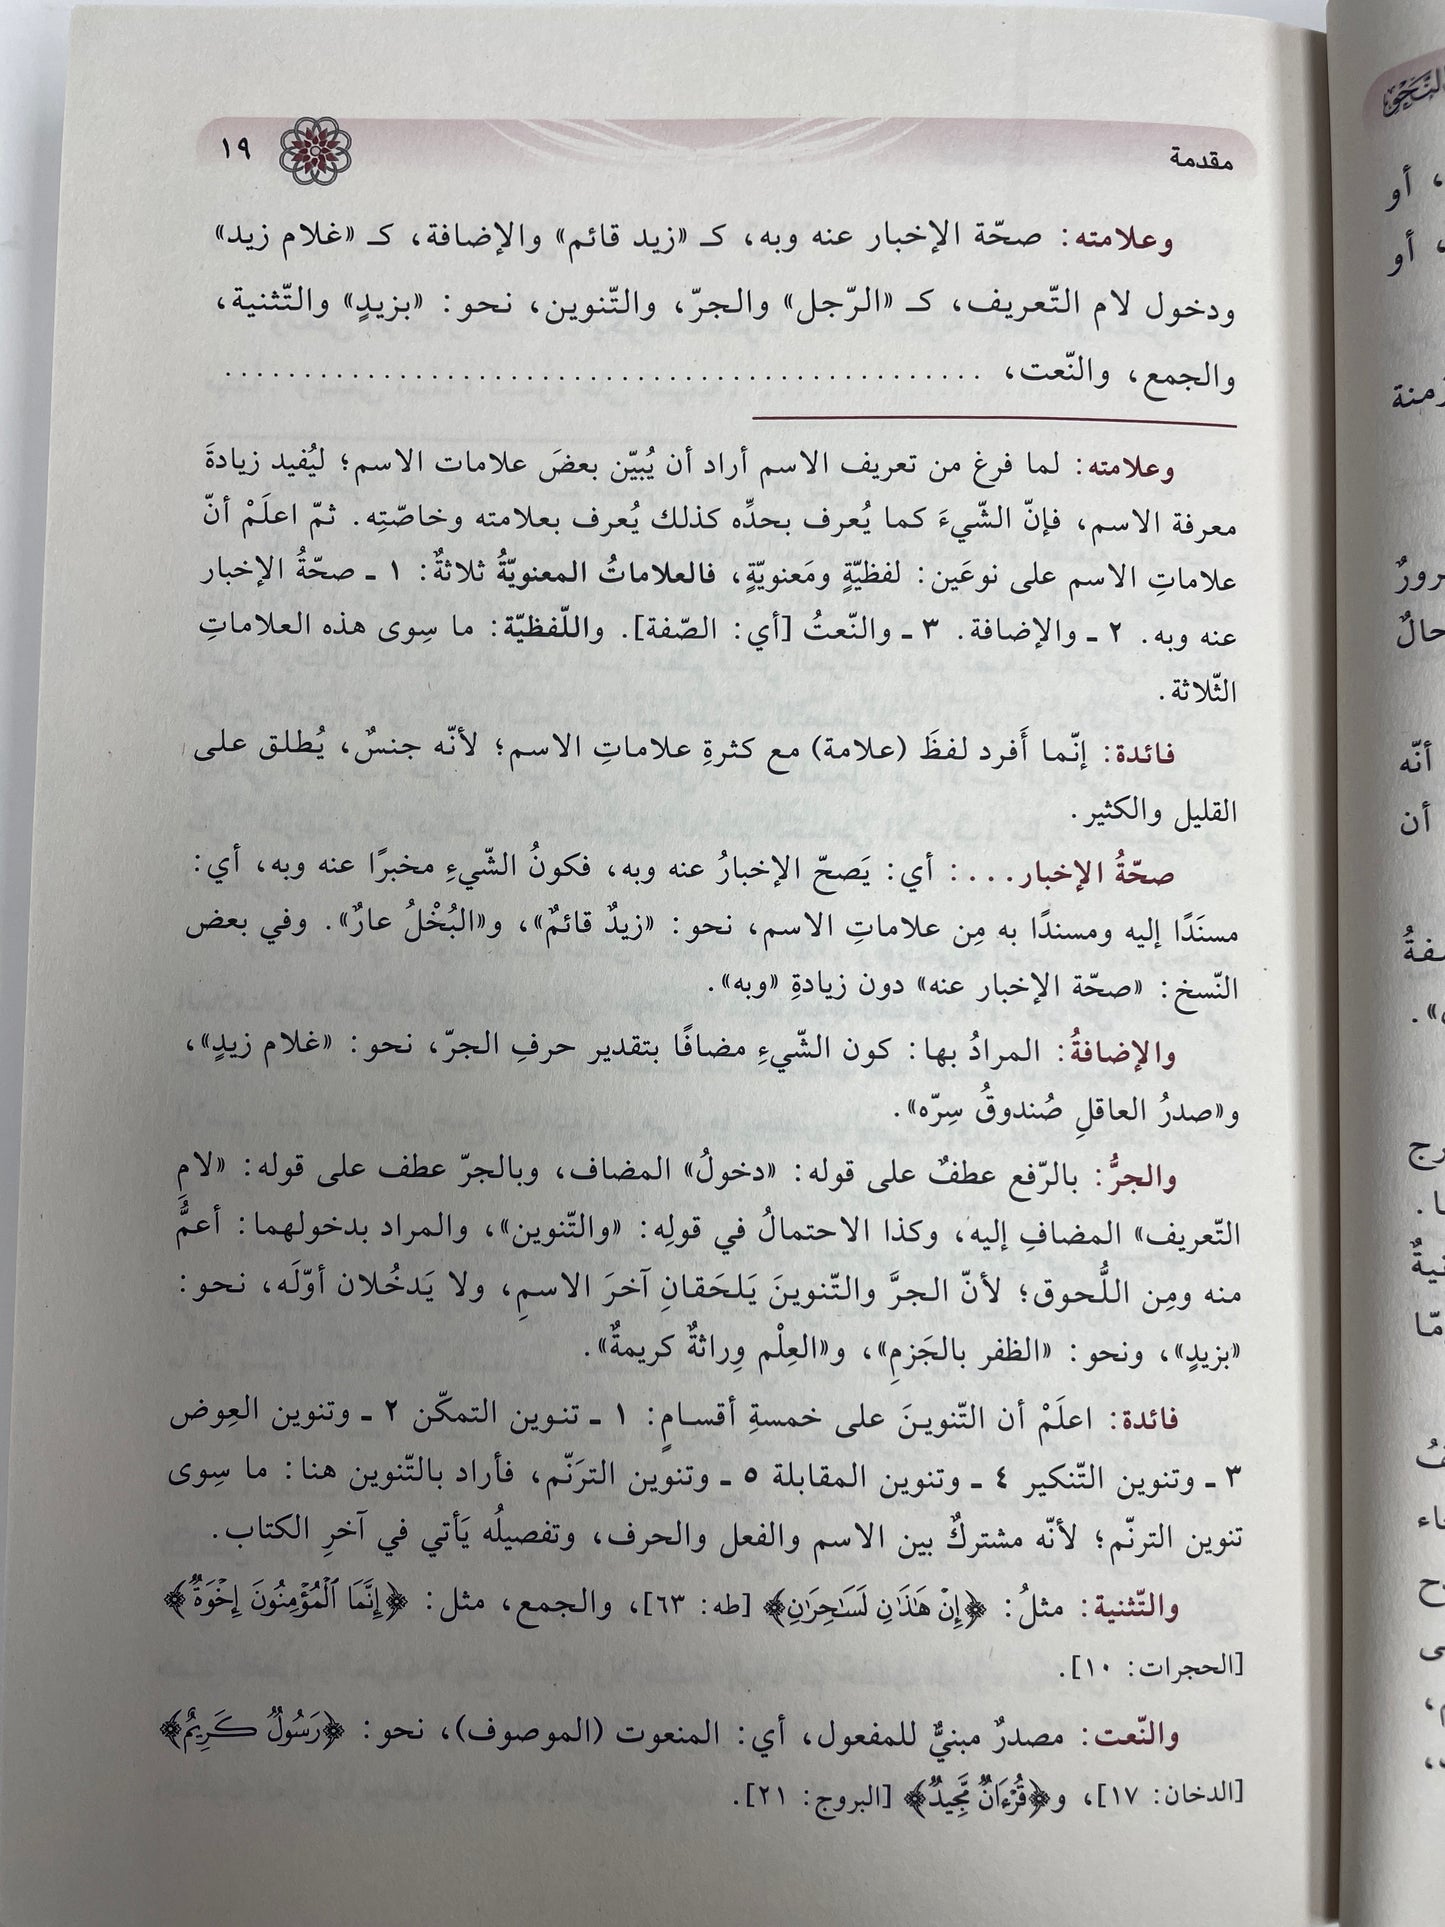 مقدمة ١٩
وعلامته: صحّة الإخبار عنه وبه، كـ «زيد قائم» والإضافة، كـ «غلام زيد»
ودخول لام التّعريف، كـ «الرّجل» والجرّ، والتّنوين، نحو: «بزيدٍ» والتّثنية،
والجمع، والنّعت، ................................................
وعلامته: لما فرغ من تعريف الاسم أراد أن يُبيّن بعضَ علامات الاسم؛ ليُفيد زيادةَ
معرفة الاسم، فإنّ الشّيءَ كما يُعرف بحدِّه كذلك يُعرف بعلامته وخاصّتِه. ثمّ اعلَمْ أنّ
علاماتِ الاسم على نوعَين: لفظيّةٍ ومَعنويّةٍ، فالعلاماتُ المعنويّةُ ثلاثةٌ: ١ ـ صحّةُ الإخبار
عنه وبه. ٢ ـ والإضافة. ٣ ـ والنّعتُ [أي: الصّفة]. واللّفظيّة: ما سِوى هذه العلاماتِ
الثّلاثة.
فائدة: إنّما أَفرد لفظَ (علامة) مع كثرةِ علاماتِ الاسم؛ لأنّه جنسٌ، يُطلق على
القليل والكثير.
صحّةُ الإخبار...: أي: يَصحّ الإخبارُ عنه وبه، فكونُ الشّيءِ مخبرًا عنه وبه، أي:
مسنَدًا إليه ومسندًا به مِن علاماتِ الاسم، نحو: «زيدٌ قائمٌ»، و«البُخْلُ عارٌ». وفي بعض
النّسخ: «صحّة الإخبار عنه» دون زيادةِ «وبه».
والإضافةُ: المرادُ بها: كون الشّيءِ مضافًا بتقدير حرفِ الجرّ، نحو: «غلام زيدٍ»،
و«صدرُ العاقلِ صُندوقُ سِرّه».
والجرُّ: بالرّفع عطفٌ على قوله: «دخولُ» المضاف، وبالجرّ عطف على قوله: «لامِ
التّعريف» المضافِ إليه، وكذا الاحتمالُ في قولِه: «والتّنوين»، والمراد بدخولهما: أعمُّ
منه ومِن اللُّحوق؛ لأنّ الجرَّ والتّنوينَ يَلحَقانِ آخرَ الاسمِ، ولا يَدخُلان أوّلَه، نحو:
«بزيدٍ»، ونحو: «الظفر بالجَزمِ»، و«العِلْم وِراثةٌ كريمةٌ».
فائدة: اعلَمْ أن التّنوينَ على خمسةِ أقسامٍ: ١ ـ تنوين التمكّن ٢ ـ وتنوين العِوض
٣ ـ وتنوين التّنكير ٤ ـ وتنوين المقابلة ٥ ـ وتنوين الترَنّم، فأراد بالتّنوين هنا: ما سِوى
تنوين الترنّم؛ لأنّه مشتركٌ بين الاسم والفعل والحرف، وتفصيلُه يَأتي في آخرِ الكتاب.
والتّثنية: مثلُ: ﴿إِنْ هَٰذَٰنِ لَسَٰحِرَٰنِ﴾ [طه: ٦٣]، والجمع، مثل: ﴿إِنَّمَا ٱلْمُؤْمِنُونَ إِخْوَةٌ﴾
[الحجرات: ١٠].
والنّعت: مصدرٌ مبنيٌّ للمفعول، أي: المنعوت (الموصوف)، نحو: ﴿رَسُولٌ كَرِيمٌ﴾
[الدخان: ١٧]، و﴿قُرْءَانٌ مَّجِيدٌ﴾ [البروج: ٢١].